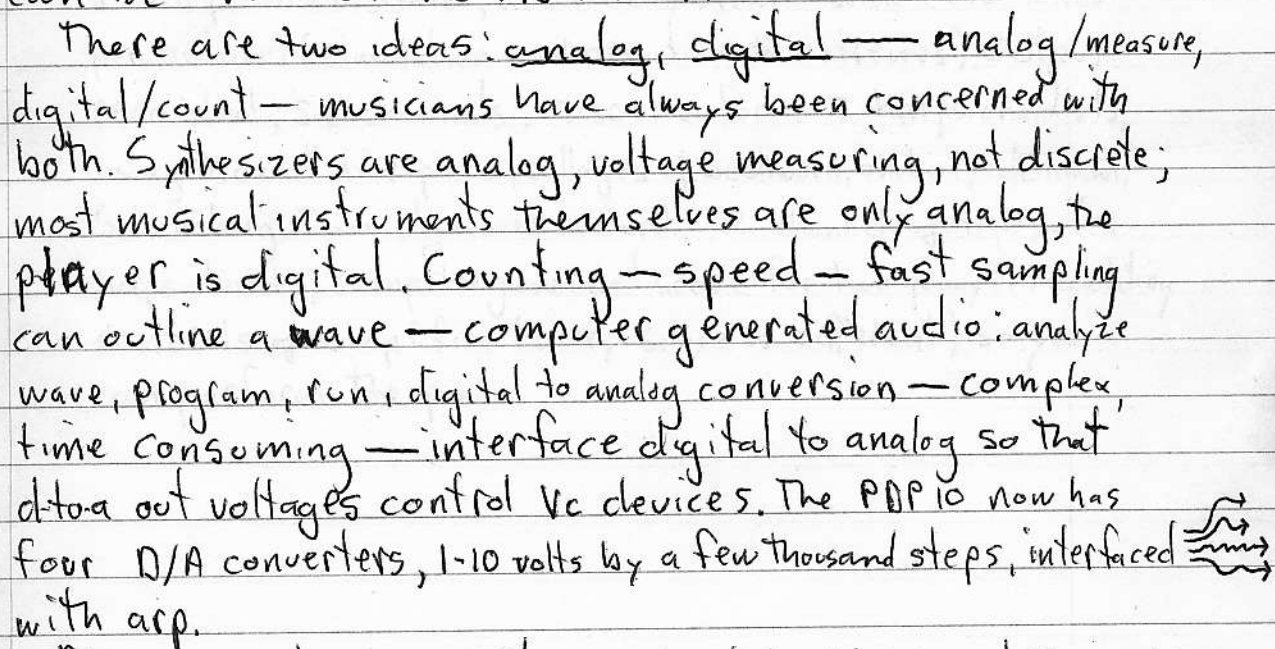 There are two ideas: analog, digital — analog/measure,
digital/count — musicians have always been concerned with
both. Synthesizers are analog, voltage measuring, not discrete;
most musical instruments themselves are only analog, the
player is digital. Counting — speed — fast sampling
can outline a wave — computer generated audio: analyze
wave, program, run, digital to analog conversion — complex,
time consuming — interface digital to analog so that
d-to-a out voltages control Vc devices. The PDP10 now has
four D/A converters, 1-10 volts by a few thousand steps, interfaced
with arp.